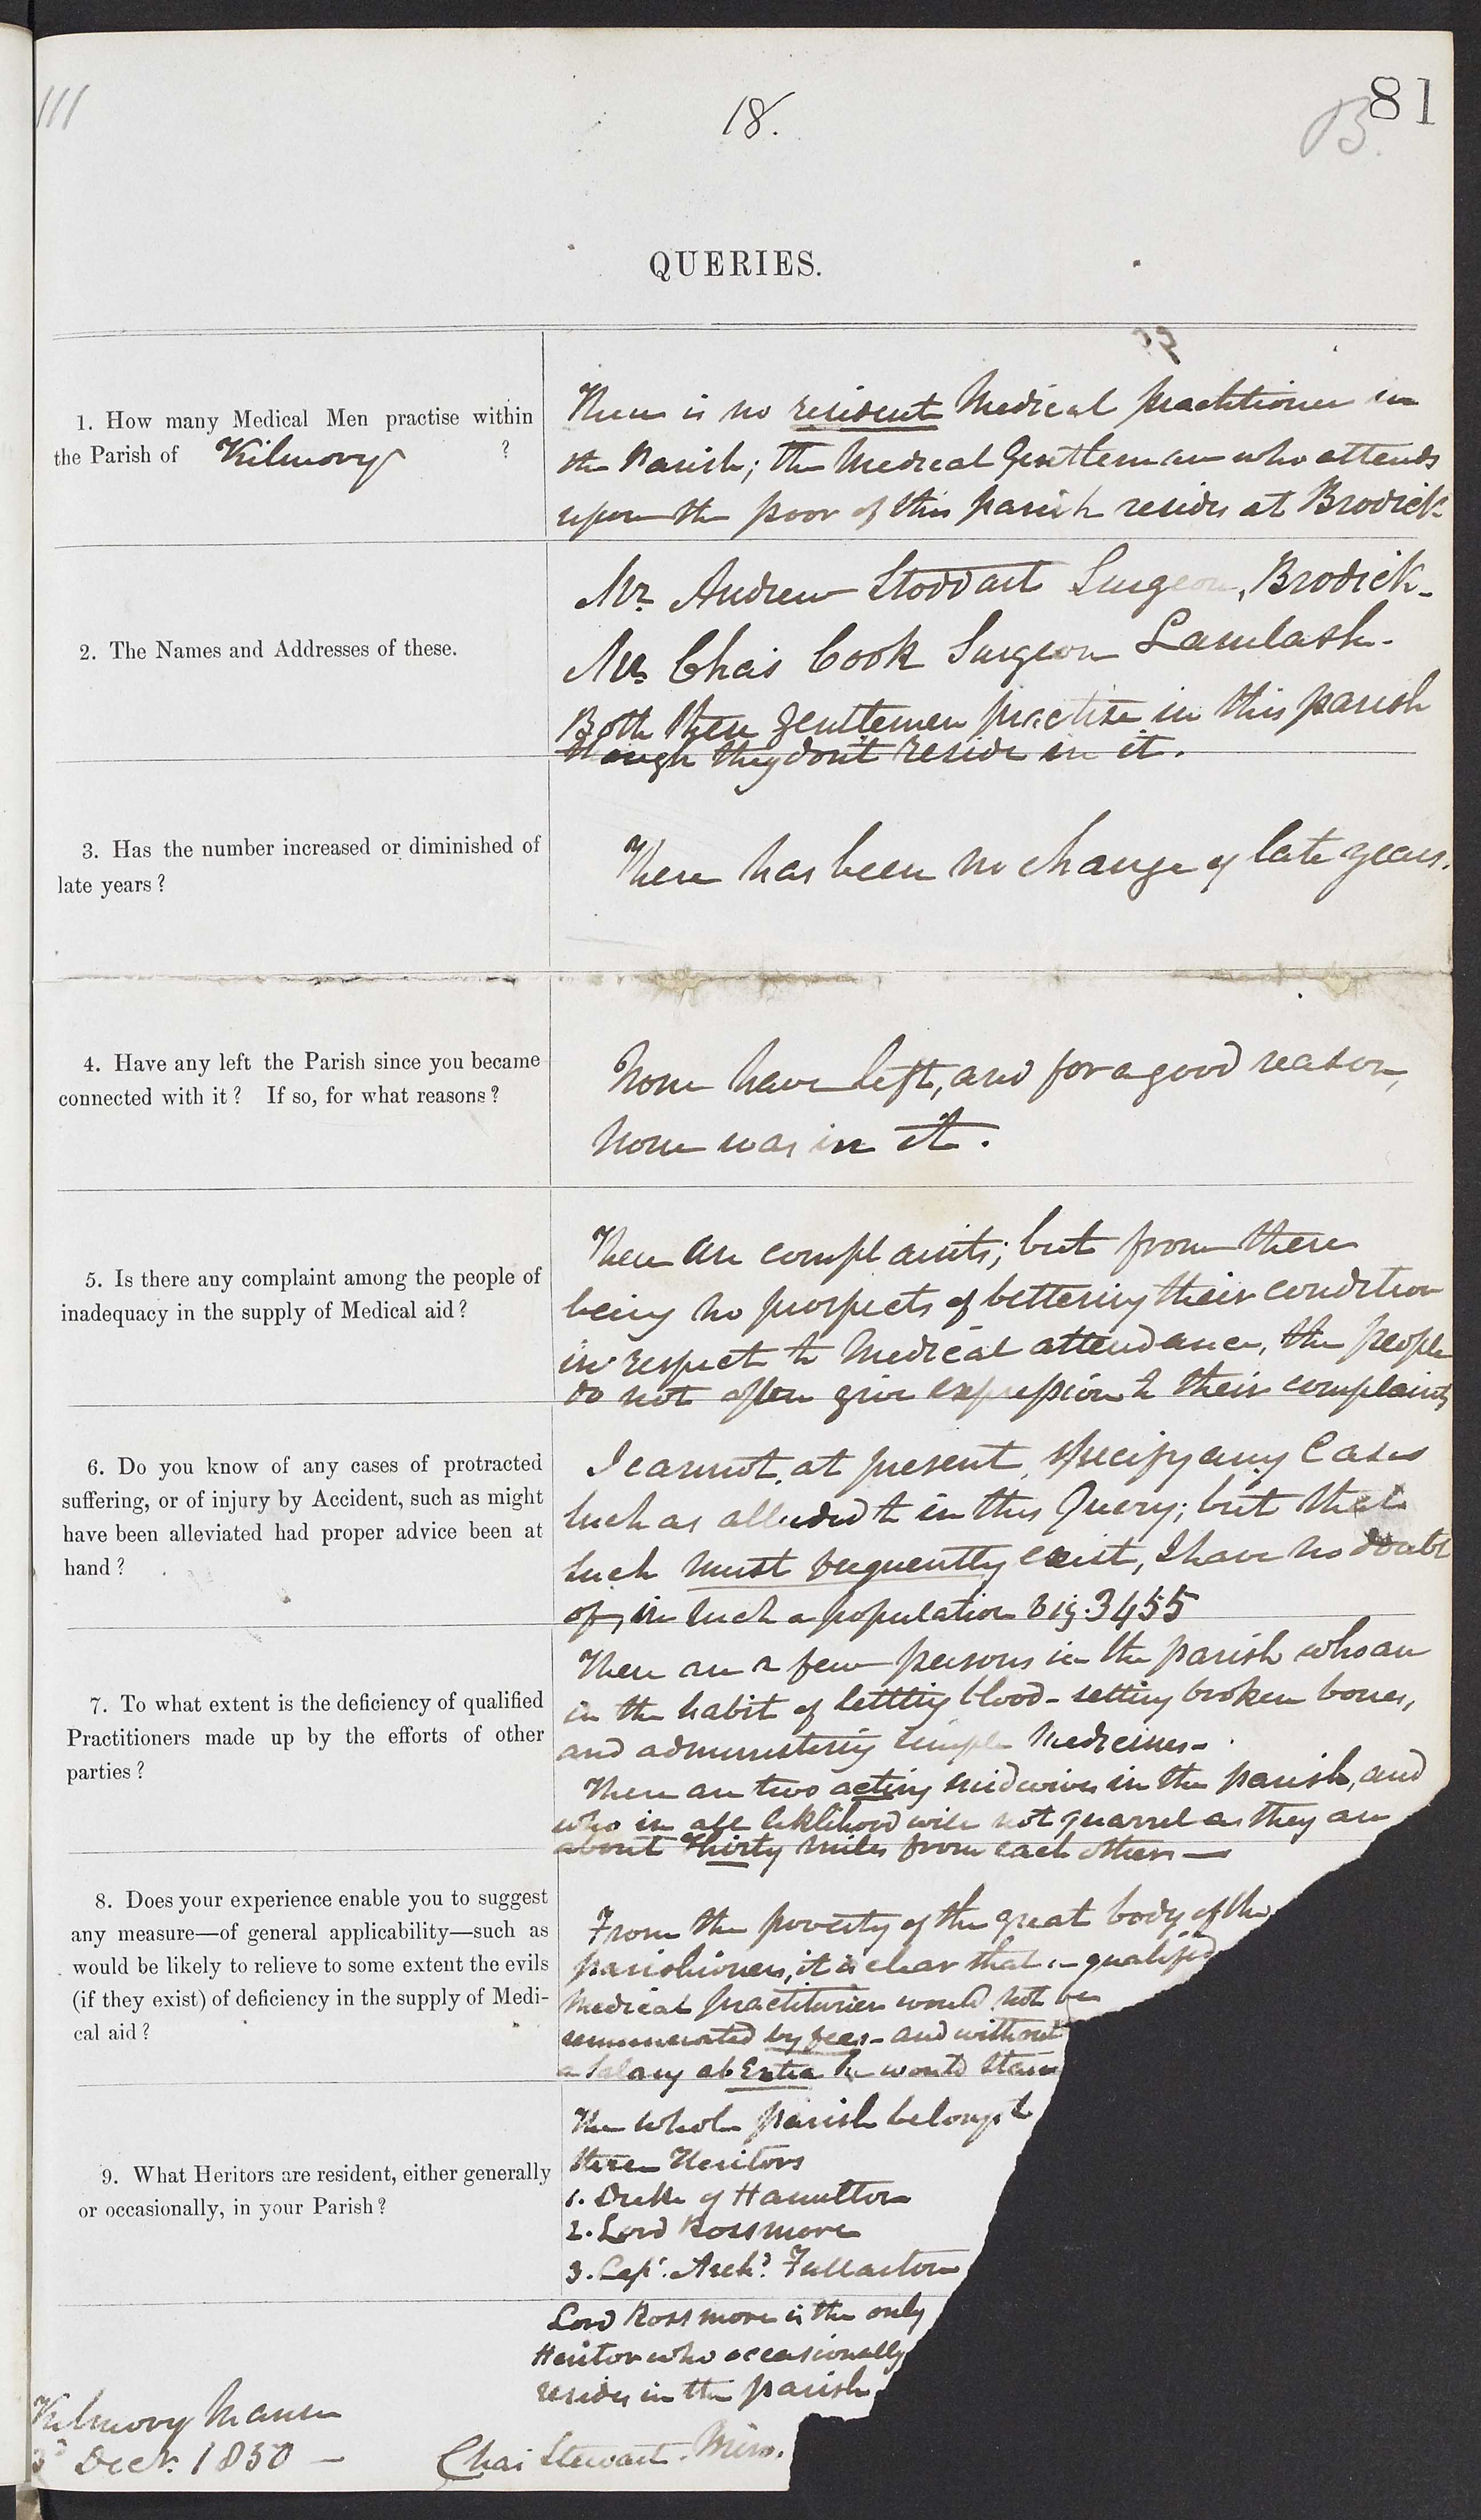 111
18.
B.
81
QUERIES.
1. How many Medical Men practise within
the Parish of Kilmory ?
There is no resident Medical practitioner in
the Parish; the Medical Gentleman who attends
upon the poor of this parish resides at Brodick
2. The Names and Addresses of these.
Mr. Andrew Stoddart Surgeon, Brodick-
Mr. Chas Cook Surgeon Lamlash-
Both these gentlemen practise in this parish
though they dont reside in it.
3. Has the number increased or diminished of
late years?
There has been no change of late years.
4. Have any left the Parish since you became
connected with it? If so, for what reasons?
None have left, and for a good reason,
none was in it.
5. Is there any complaint among the people of
inadequacy in the supply of Medical aid?
There are complaints; but from there
being no prospects of bettering their condition
in respect to Medical attendance, the people
do not often give expression to their complaints
6. Do you know of any cases of protracted
suffering, or of injury by Accident, such as might
have been alleviated had proper advice been at
hand?
I cannot, at present, specify any Cases
such as alluded to in this Query; but that
such must frequently exist, I have no doubt
of, in such a population viz. 3455
7. To what extent is the deficiency of qualified
Practitioners made up by the efforts of other
parties?
There are a few persons in the parish who are
in the habit of lettting blood - setting broken bones,
and administering simple Medicines-
There are two acting midwives in the parish, and
who in all liklihood will not quarrel as they are
about Thirty miles from each other —
8. Does your experience enable you to suggest
any measure—of general applicability—such as
would be likely to relieve to some extent the evils
(if they exist) of deficiency in the supply of Medi-
cal aid?
From the poverty of the great body of the
parishioners, it is clear that a qualified
Medical practitioner would not be
remunerated by fees - and without
a Salary ab Extra he would starve
9. What Heritors are resident, either generally
or occasionally, in your Parish?
The whole parish belongs to
three Heritors
1. Duke of Hamilton
2. Lord Rossmore
3. Capt. Archd. Fullarton
Lord Rossmore is the only
Heritor who occasionally
resides in the parish
Kilmory Manse
3d Decr. 1850 —
Chas Stewart. Minr.